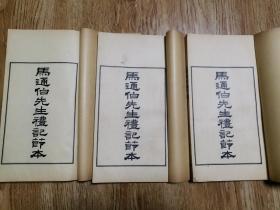 馬通伯先生禮記節本
馬通伯先生禮記節本
馬通伯先生禮記節本